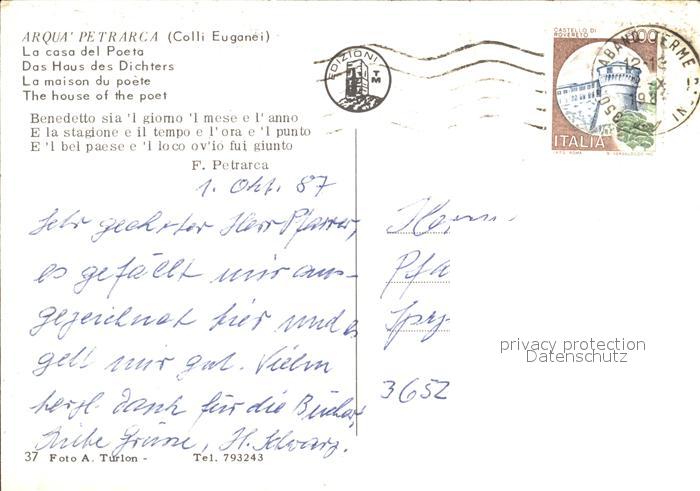 ARQUA' PETRARCA (Colli Euganei)
La casa del Poeta
Das Haus des Dichters
La maison du poète
The house of the poet
Benedetto sia 'l giorno 'l mese e l'anno
E la stagione e il tempo e l'ora e 'l punto
E 'l bel paese e 'l loco ov'io fui giunto
F. Petrarca
1. Okt. 87
Sehr geehrter Herr Pfarrer,
es gefällt mir aus-
gezeichnet hier und es
geht mir gut. Vielen
herzl. Dank für die Bücher,
Liebe Grüsse, H. Schwarz.
37 Foto A. Turlon - Tel. 793243
EDIZIONI
TM
CASTELLO DI
ROVERETO
ITALIA
I.P.Z.S. ROMA
ABANO TERME
Herrn
Pfa
3652
privacy protection
Datenschutz